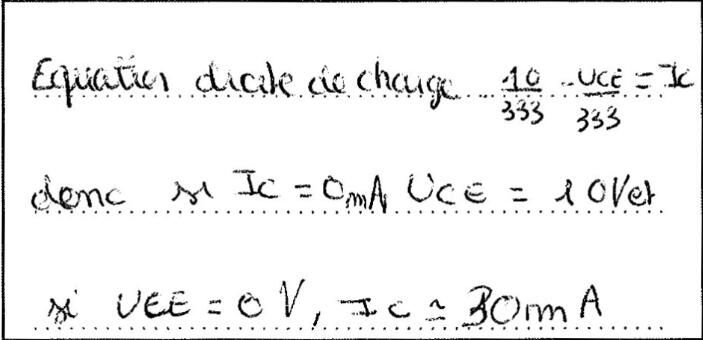 Equation droite de charge 10/333 - UCE/333 = Ic
denc si Ic = 0mA UCE = 10V et
si UEE = 0 V, Ic ≃ 30mA